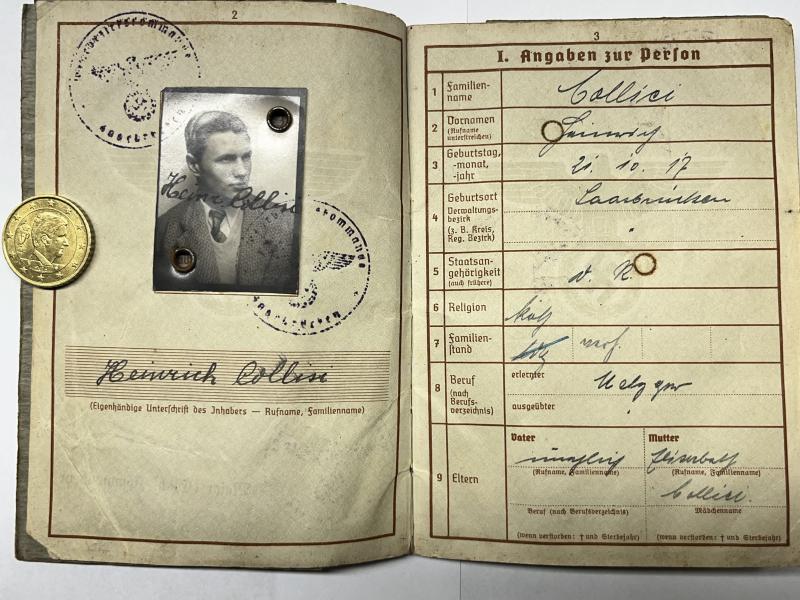 2
Wehrbezirkskommando
Saarbrücken
Heinz Collisi
Saarbrücken
Heinrich Collisi
(Eigenhändige Unterschrift des Inhabers — Rufname, Familienname)
3
I. Angaben zur Person
1 Familien-
name
Collisi
2 Vornamen
(Rufname
unterstreichen)
Heinrich
3 Geburtstag,
-monat,
-jahr
21. 10. 17
4 Geburtsort
Verwaltungs-
bezirk
(z. B. Kreis,
Reg. Bezirk)
Saarbrücken
"
5 Staatsan-
gehörigkeit
(auch frühere)
D. R.
6 Religion
kath
7 Familien-
stand
led. verh.
8 Beruf
(nach
Berufs-
verzeichnis)
erlernter
Metzger
ausgeübter
"
9 Eltern
Vater
unehelich
(Rufname, Familienname)
Beruf (nach Berufsverzeichnis)
(wenn verstorben: † und Sterbejahr)
Mutter
Elisabeth
(Rufname, Familienname)
Collisi.
Mädchenname
(wenn verstorben: † und Sterbejahr)